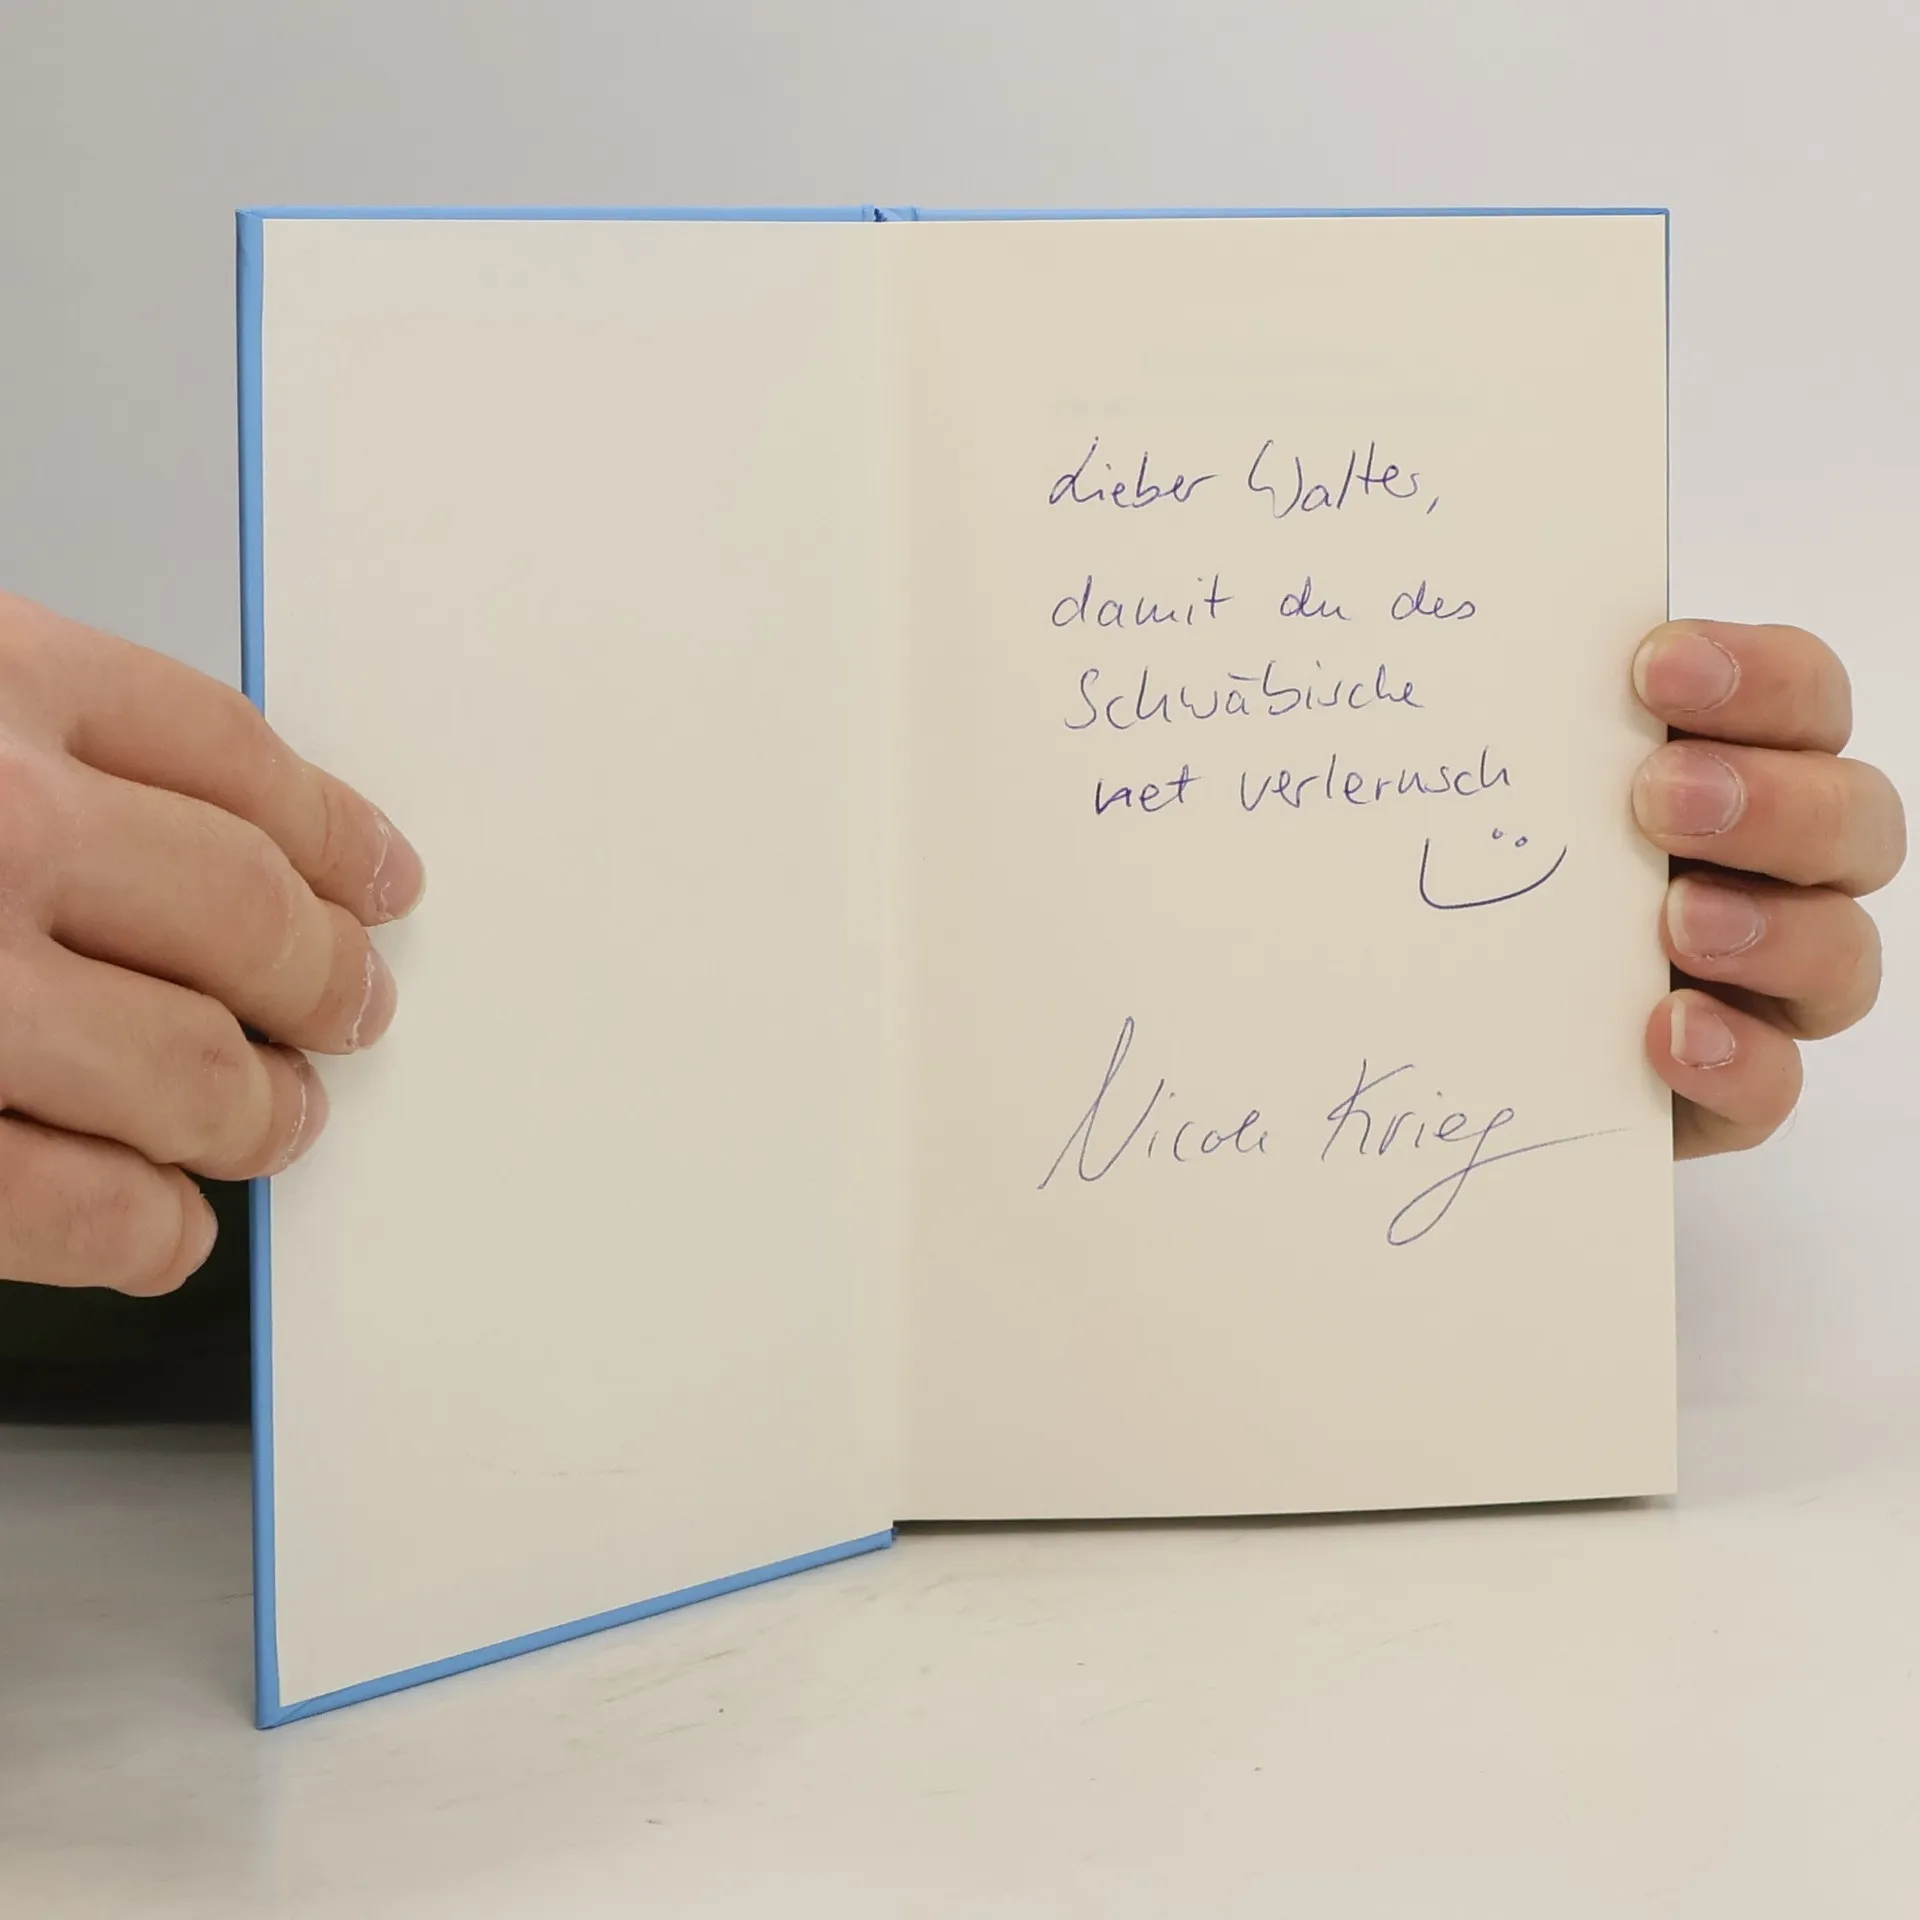 Lieber Walter,
damit du des
Schwäbische
net verlernsch
Nicole Krieg